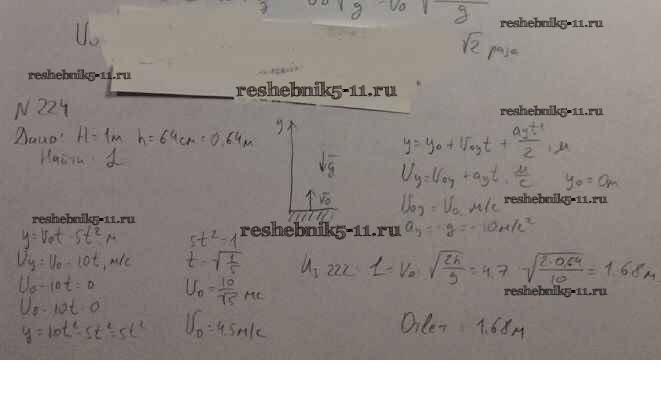 U₀
√2 раза
reshebnik5-11.ru
reshebnik5-11.ru
reshebnik5-11.ru
N 224
Дано: H = 1м h = 64см = 0,64м
Найти: L
y
g
v₀
reshebnik5-11.ru
y = y₀ + V₀yt + ayt²/2, м
Vy = V₀y + ayt, м/с y₀ = 0м
V₀y = V₀, м/с
ay = -g = -10м/с²
reshebnik5-11.ru
reshebnik5-11.ru
y = V₀t - 5t², м
Vy = V₀ - 10t, м/с
U₀ - 10t = 0
U₀ = 10t = 0
y = 10t² - 5t² = 5t²
5t² = 1
t = √(1/5)
U₀ = 10/√5 м/с
U₀ = 4.5м/с
Из 222: L = V₀ · √(2h/g) = 4,7 · √(2·0,64/10) = 1.68м
reshebnik5-11.ru
Ответ: 1.68м